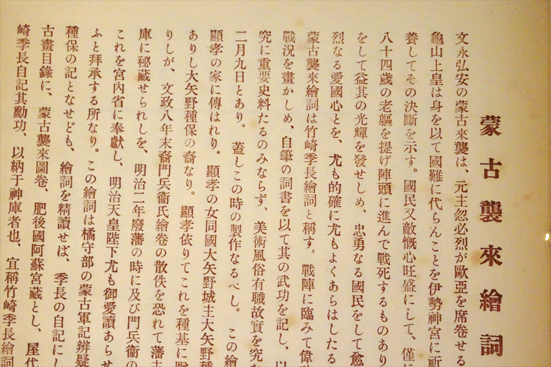 蒙古襲來繪詞
文永弘安の蒙古來襲は、元主忽必烈が歐亞を席卷せる
龜山上皇は身を以て國難に代らんことを伊勢神宮に祈
養してその決斷を示す。國民又敵愾心旺盛にして、僅に
八十四歳の老軀を提げ陣頭に進んで戰死するものあり
をして益其の光輝を發せしめ、忠勇なる國民をして愈
烈なる愛國心とを、尤も的確に尤もよくあらはしたる
蒙古襲來繪詞は竹崎季長繪詞と稱す。戰陣に臨みて偉
戰況を畫かしめ、自筆の詞書を以て其の武功を記し、以
究に重要史料たるのみならず、美術風俗有職故實を究
二月九日とあり。蓋しこの時の製作なるべし。この繪
顯孝の家に傳はれり。顯孝の女同國大矢野城主大矢野種
ありし大矢野種保の裔なり。顯孝依りてこれを種基に
りしが、文政八年末裔門兵衞氏繪卷の散佚を恐れて藩主
庫に秘藏せられしを、明治二年廢藩の時に及び門兵衞の
これを宮内省に奉獻し、明治天皇陛下尤も御愛讀あらせ
ふと拜承する所なり。この繪詞は橘守部の蒙古軍記辨疑
種保の記となせども、繪詞を精讀せば、季長の自記にし
古畫目錄に、蒙古襲來圖卷、肥後國阿蘇宮藏とし、屋代
崎季長自記其勳功、以納于神庫者也、宜稱竹崎季長繪詞